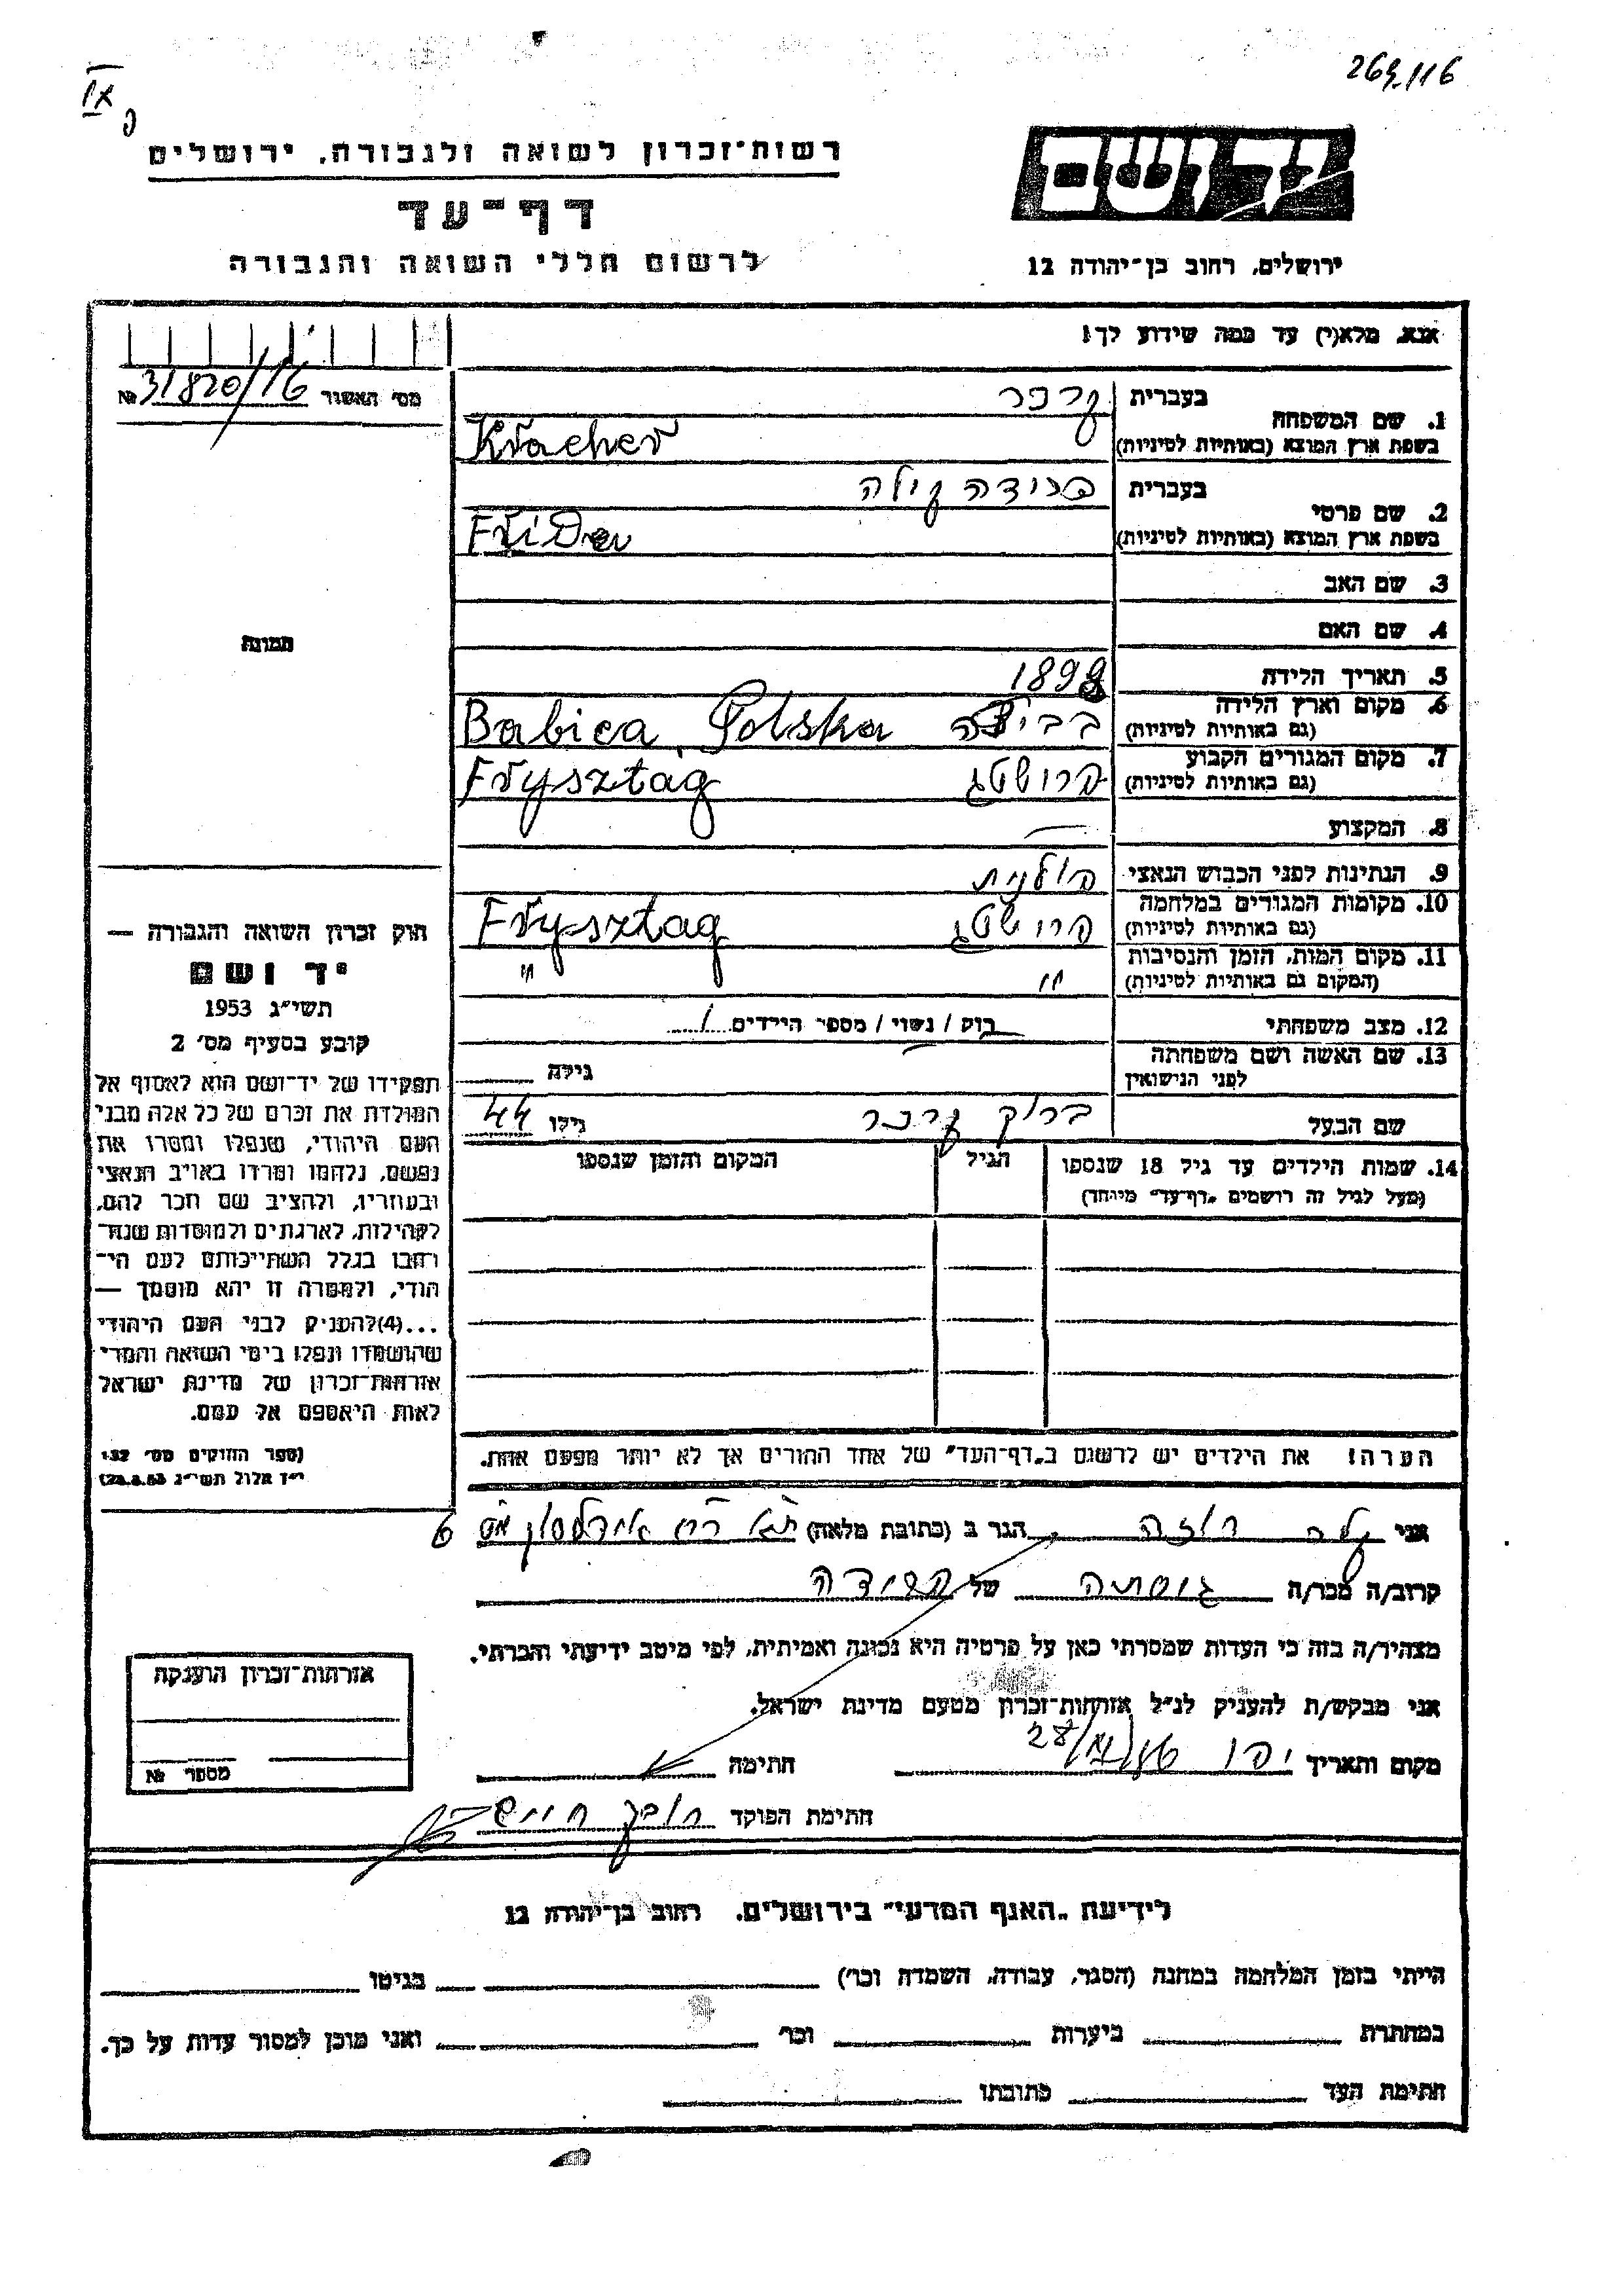 269/116
IX
פ
יד ושם
רשות־זכרון לשואה ולגבורה, ירושלים
דף־עד
לרשום חללי השואה והגבורה
ירושלים, רחוב בן־יהודה 12
אנא, מלא(י) עד כמה שידוע לך!
מס׳ האשור 31820/16 №
בעברית קרכר
1. שם המשפחה
בשפת ארץ המוצא (באותיות לטיניות) Kracher
בעברית פרידה קילה
2. שם פרטי
בשפת ארץ המוצא (באותיות לטיניות) Frida
3. שם האב
4. שם האם
תמונה
5. תאריך הלידה 1898
6. מקום וארץ הלידה
(גם באותיות לטיניות) בביצה Babica, Polska
7. מקום המגורים הקבוע
(גם באותיות לטיניות) פרושטג Frysztag
8. המקצוע —
9. הנתינות לפני הכבוש הנאצי פולנית
10. מקומות המגורים במלחמה
(גם באותיות לטיניות) פרושטג Frysztag
11. מקום המות, הזמן והנסיבות
(המקום גם באותיות לטיניות) " "
12. מצב משפחתי רוק / נשוי / מספר הילדים 1
13. שם האשה ושם משפחתה
לפני הנישואין גילה
שם הבעל ברוך קרכר גילו 44
14. שמות הילדים עד גיל 18 שנספו הגיל המקום והזמן שנספו
(מעל לגיל זה רושמים „דף־עד״ מיוחד)
הערה! את הילדים יש לרשום ב„דף־העד״ של אחד ההורים אך לא יותר מפעם אחת.
חוק זכרון השואה והגבורה —
יד ושם
תשי״ג 1953
קובע בסעיף מס׳ 2
תפקידו של יד־ושם הוא לאסוף אל
המולדת את זכרם של כל אלה מבני
העם היהודי, שנפלו ומסרו את
נפשם, נלחמו ומרדו באויב הנאצי
ובעוזריו, ולהציב שם וזכר להם,
לקהילות, לארגונים ולמוסדות שנח־
רבו בגלל השתייכותם לעם הי־
הודי, ולמטרה זו יהא מוסמך —
...(4)להעניק לבני העם היהודי
שהושמדו ונפלו בימי השואה והמרי
אזרחות־זכרון של מדינת ישראל
לאות היאספם אל עמם.
(ספר החוקים מס׳ 132
י״ז אלול תשי״ג 28.8.53)
אני רוזה הגר ב (כתובת מלאה) 6
קרוב/ה מכר/ה גיסתה של פרידה
מצהיר/ה בזה כי העדות שמסרתי כאן על פרטיה היא נכונה ואמיתית, לפי מיטב ידיעתי והכרתי.
אני מבקש/ת להעניק לנ״ל אזרחות־זכרון מטעם מדינת ישראל.
מקום ותאריך יפו חתימה
חתימת הפוקד
אזרחות־זכרון הוענקה
מספר №
לידיעת „האגף המדעי״ בירושלים. רחוב בן־יהודה 12
הייתי בזמן המלחמה במחנה (הסגר, עבודה, השמדה וכו׳) בגיטו
במחתרת ביערות וכו׳ ואני מוכן למסור עדות על כך.
חתימת העד כתובתו